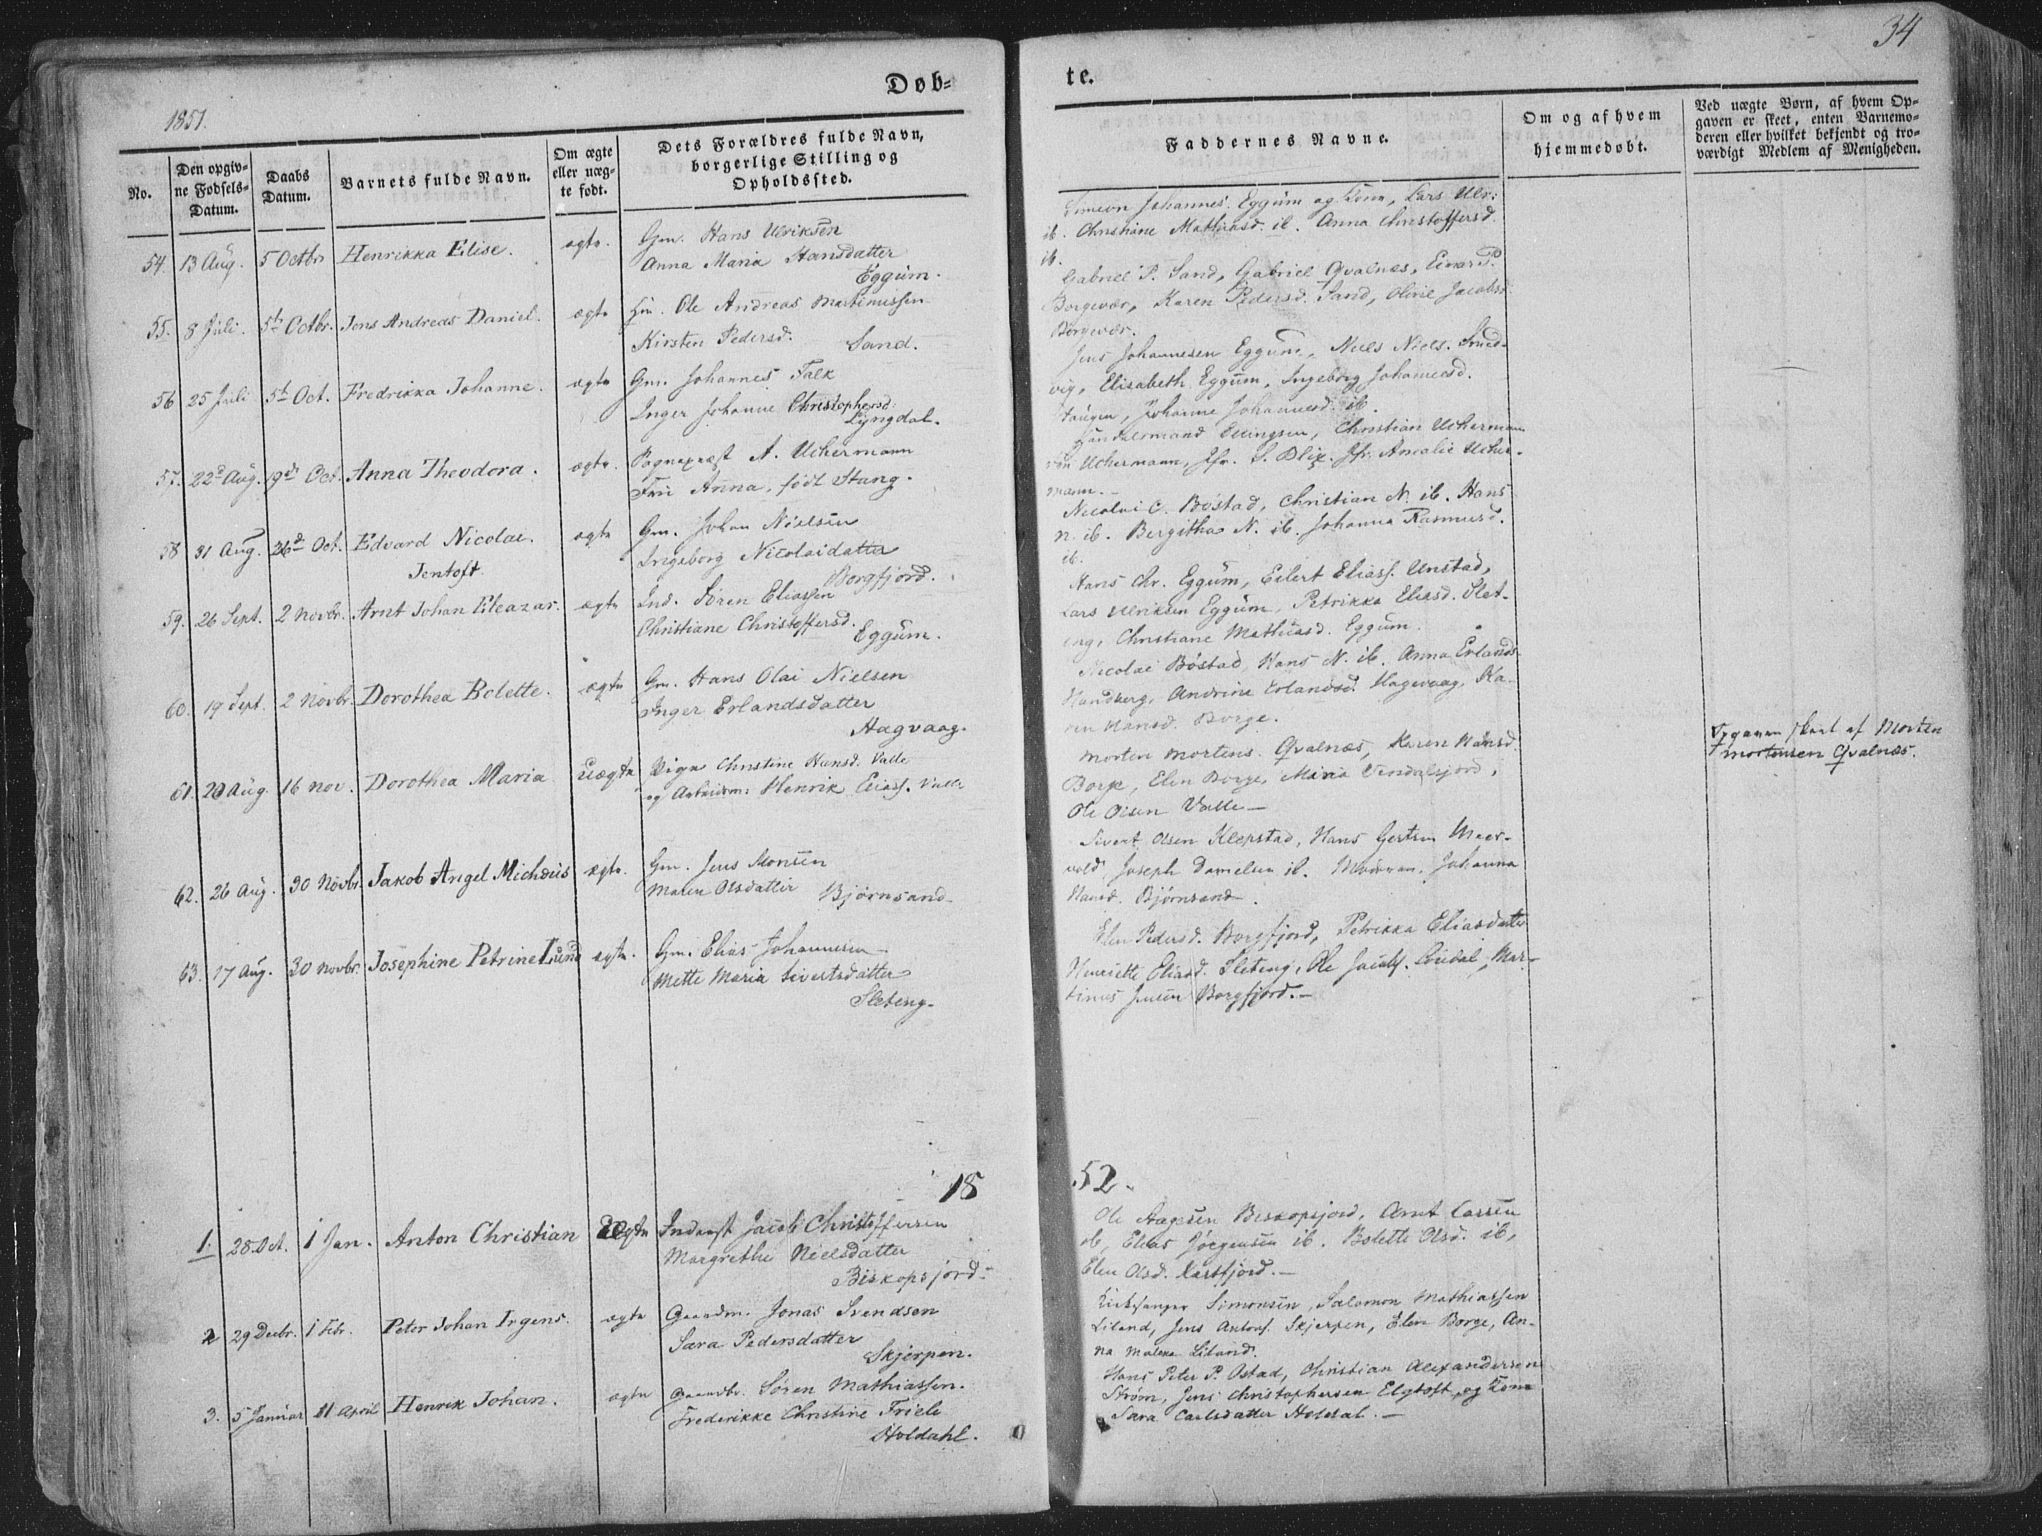 34
1851.
Døb-
te.
No.
Den opgiv-
ne Fødsels-
Datum.
Daabs
Datum.
Barnets fulde Navn.
Om ægte
eller uæg-
te født.
Dets Forældres fulde Navn,
borgerlige Stilling og
Opholdssted.
Faddernes Navne.
Om og af hvem
hjemmedøbt.
Ved uægte Børn, af hvem Op-
gaven er skeet, enten Barnemo-
deren eller hvilket bekjendt og tro-
værdigt Medlem af Menigheden.
54. 13 Aug. 5 Octbr Henrikka Elise. ægte. Gm. Hans Ulriksen
Anna Maria Hansdatter
Eggum.
Simeon Johannes. Eggum og Kone, Lars Ulr:
ib. Christiane Mathiasd. ib. Anna Christoffersd.
ib.
55. 8 Juli. 5te Octbr. Jens Andreas Daniel. ægte Gm. Ole Andreas Martinussen
Kirsten Pedersd.
Sand.
Gabriel P. Sand, Gabriel Qvalnæs, Einar P.
Borgevær, Karen Pedersd. Sand, Oline Jacobsd
Borgevær.
56 25 Juli 5te Oct. Fredrikka Johanne. ægte Gm. Johannes Falk
Inger Johanne Christophersd.
Lyngdal.
Jens Johannesen Eggum, Niels Niels. Smed-
vig, Elisabeth Eggum, Ingeborg Johannesd.
Johanne Johannesd. ib.
57. 22d Aug. 19de Oct. Anna Theodora. ægte. Sognepræst A. Uchermann
Fru Anna, født Stang.
Handelsmand Ellingsen, Christian Uchermann
Uchermann, Jfr. S. Blix. Jfr. Amalie Ucher-
mann.-
58 31 Aug. 26d Oct. Edvard Nicolai
Jentoft.
ægte Gm. Johan Nielsen
Ingeborg Nicolaidatter
Borgfjord.
Nicolai C. Bøstad, Christian N. ib. Hans
N. ib. Bergitha N. ib. Johanna Rasmusd.
ib.
59. 26 Sept. 2 Novbr. Arnt Johan Eleazar. ægte Ind. Søren Eliassen
Christiane Christoffersd.
Eggum.
Hans Chr. Eggum, Eilert Eliass. Unstad,
Lars Ulriksen Eggum, Petrikka Eliasd. Slet-
eng, Christiane Mathiasd. Eggum.
60. 19 Sept. 2 Novbr. Dorothea Bolette. ægte Gm. Hans Olai Nielsen
Inger Erlandsdatter
Hagvaag.
Nicolai Bøstad, Hans N. ib. Anna Erlands-
Handberg, Andrine Erlandsd. Hagevaag, Ka-
ren Hansd. Borge.
61. 20 Aug. 16 Nov. Dorothea Maria Uægte Pige Christine Hansd. Valle
og Arbeidsm: Henrik Eliass. Valle
Morten Mortens. Qvalnæs, Karen Hansd.
Borge, Elen Borge, Maria Vendalsjord,
Ole Olsen Valle-
Opgaven skeet af Morten
Mortensen Qvalnæs.
62. 26 Aug. 30 Novbr. Jakob Angel Michæus ægte. Gm. Jens Monsen
Maren Olsdatter
Bjørnsand
Sivert Olsen Klepstad, Hans Gertsen Meer-
vold, Joseph Danielsen ib. Johanna
Hansd. Bjørnsand.
63. 17 Aug. 30 Novbr. Josephine Petrine Lund ægte. Gm. Elias Johannesen
Mette Maria Sivertsdatter
Sleteng.
Elen Pedersd. Borgfjord, Petrikka Eliasdatter
Henriette Eliasd. Sleteng, Ole Jacobs. Mar-
tinus Jensen Borgfjord.-
18
52.
1. 28. Oct. 1 Jan. Anton Christian Uægte Inderst Jacob Christoffersen
Margrethe Nielsdatter
Biskopsjord-
Ole Aagesen Biskopsjord, Arnt Larsen
ib, Elias Jørgensen ib. Bolette Olsd. ib,
Elen Olsd. Kartfjord.-
2 29 Decbr. 1 Febr. Peter Johan Irgens. ægte Gaardm. Jonas Svendsen
Sara Pedersdatter
Skjerpen.
Kirkesanger Simonsen, Salomon Mathiassen
Liland, Jens Antons. Skjerpen, Elen Borge, An-
na Malena Liland.
3. 5 Januar 11 April Henrik Johan. ægte Gaardbr. Søren Mathiassen.
Frederikke Christine Friele
Holdahl.
Hans Peter P. Ostad, Christian Alexandersen
Strøm, Jens Christophersen Elgtoft og Kone
Sara Carlsdatter Holdal.-